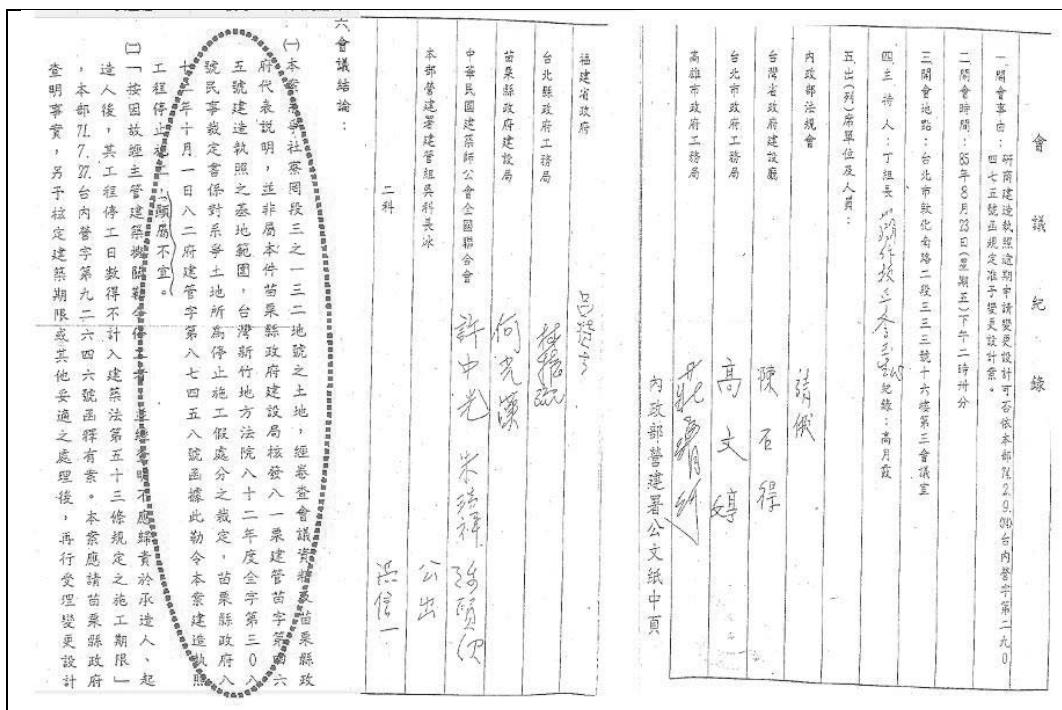 會議紀錄
一、開會事由：研商建造執照逾期申請變更設計可否依本部74.2.9.台內營字第二九０
四七五號函規定准予變更設計案。
二、開會時間：85年8月23日（星期五）下午二時卅分
三、開會地點：台北市敦化南路二段三三三號十六樓第三會議室
四、主持人：丁組長 紀錄：高月霞
五、出（列）席單位及人員：
內政部法規會
台灣省政府建設廳 陳石得
台北市政府工務局 高文婷
高雄市政府工務局
內政部營建署公文紙中頁
福建省政府
台北縣政府工務局
苗栗縣政府建設局 何光漢
中華民國建築師公會全國聯合會 許中光
本部營建署建管組吳科長冰 公出
二科 洪信一
六、會議結論：
㈠本案系爭社寮岡段三之一三二地號之土地，經卷查會議資料及苗栗縣政
府代表說明，並非屬本件苗栗縣政府建設局核發八一栗建管苗字第 六
五號建造執照之基地範圍，台灣新竹地方法院八十二年度全字第三０八
號民事裁定書係對系爭土地所為停止施工假處分之裁定，苗栗縣政府八
十二年十月一日八二府建管字第八七四五八號函據此勒令本案建造執照
工程停止施工，顯屬不宜。
㈡「按因故經主管建築機關勒令停工者，並經查明不應歸責於承造人、起
造人後，其工程停工日數得不計入建築法第五十三條規定之施工期限」
，本部71.7.27.台內營字第九二六四六號函釋有案。本案應請苗栗縣政府
查明事實，另予核定建築期限或其他妥適之處理後，再行受理變更設計